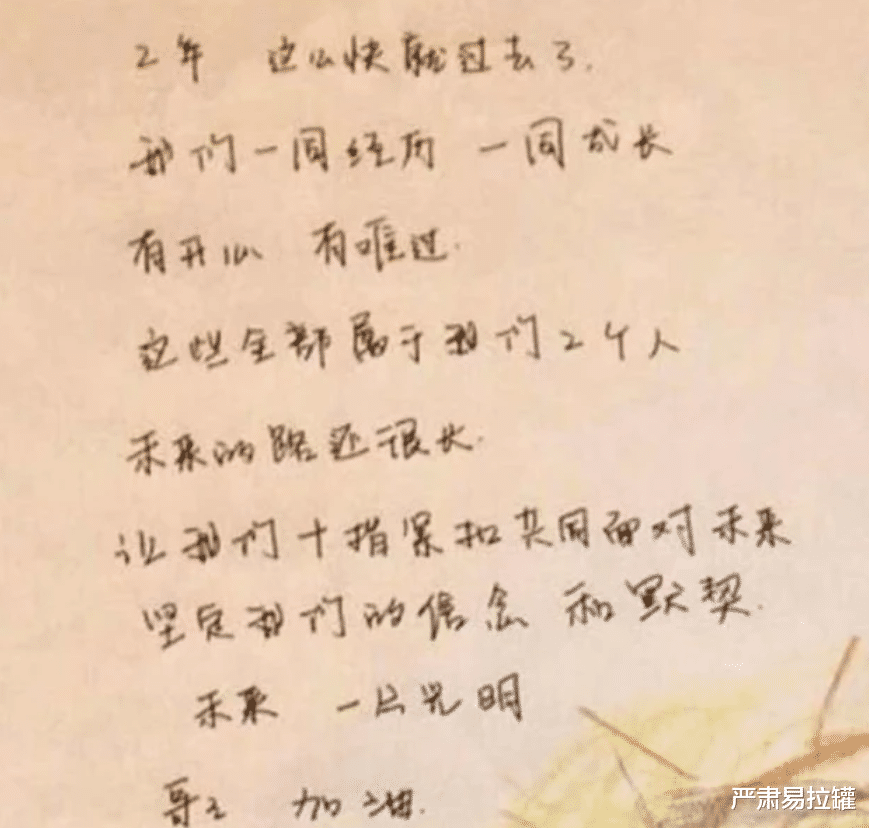 2年 这么快就过去了.
我们一同经历 一同成长
有开心 有难过.
这些全部属于我们2个人
未来的路还很长.
让我们十指紧扣共同面对未来
坚定我们的信念 和默契.
未来 一片光明
哥哥 加油.
严肃易拉罐